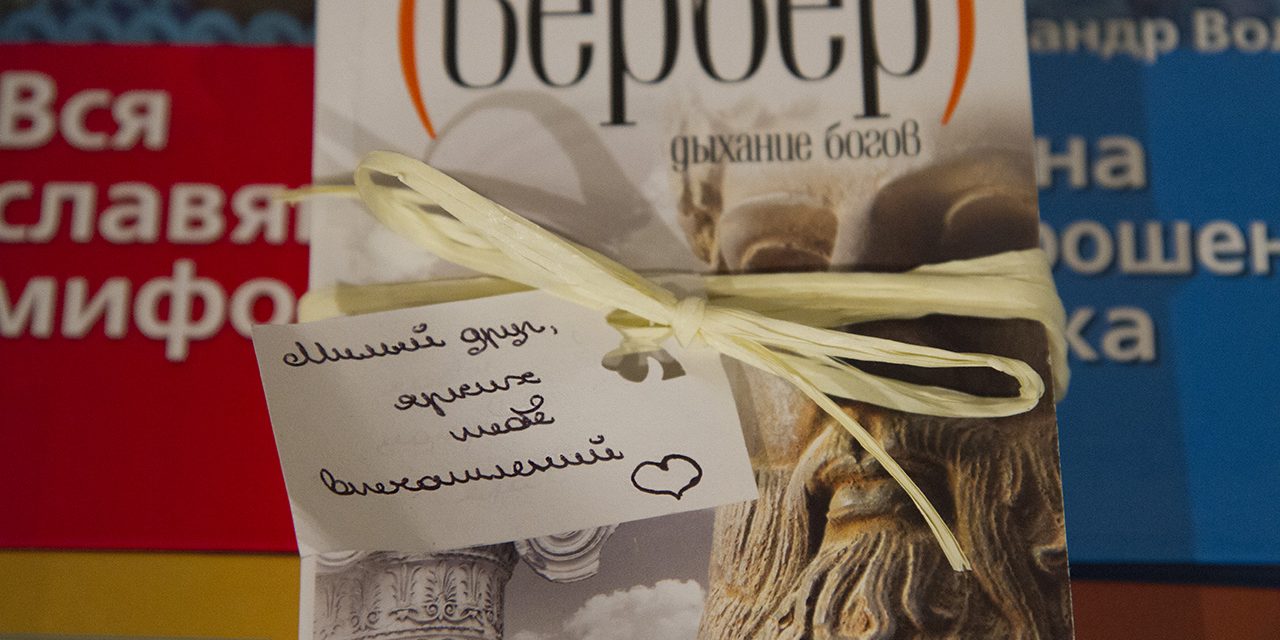 Вся
славя
мифо
Вербер
дыхание богов
андр Вол
на
рошен
ка
Милый друг,
ярких
тебе
впечатлений